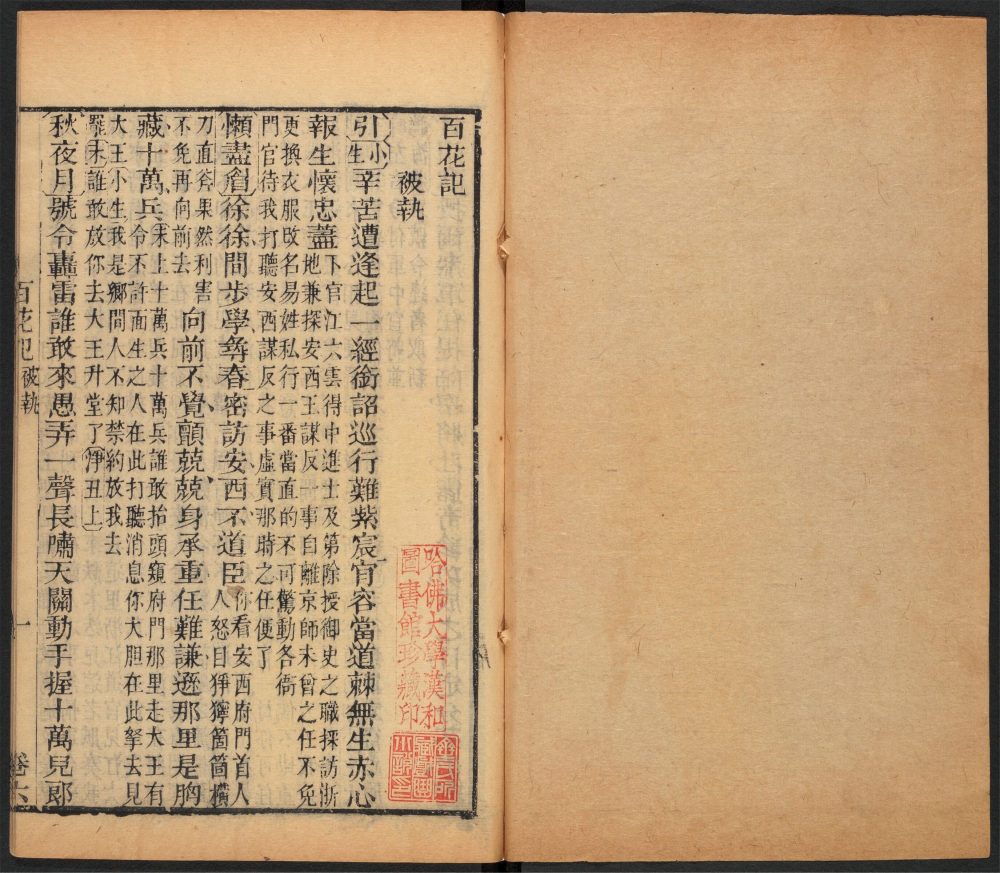 百花記
被執
引小生辛苦遭逢起一經銜詔巡行難紫宸宵容當道棘無生赤心
報生懷忠藎下官江六雲得中進士及第除授御史之職採訪浙
地兼探安西王謀反一事自離京師未曾之任不免
更換衣服改名易姓私行一番當直的不可驚動各衙
門官待我打聽安西謀反之事虛實那時之任便了
懶畫眉徐徐間步學尋春密訪安西不道臣你看安西府門首人
人怒目猙獰箇箇橫
刀直斧果然利害
不免再向前去向前不覺顫兢兢身承重任難謙遜那里是胸
藏十萬兵末上十萬兵十萬兵誰敢抬頭窺府門那里走大王有
令不許面生之人在此打聽消息你大胆在此拏去見
大王小生我是鄉間人不知禁約放我去
罷末誰敢放你去大王升堂了淨丑上
秋夜月號令轟雷誰敢來愚弄一聲長嘯天關動手握十萬兒郎
百花記 被執 一 卷六
哈佛大學漢和
圖書館珍藏印
齊氏所
藏戲曲
小說印